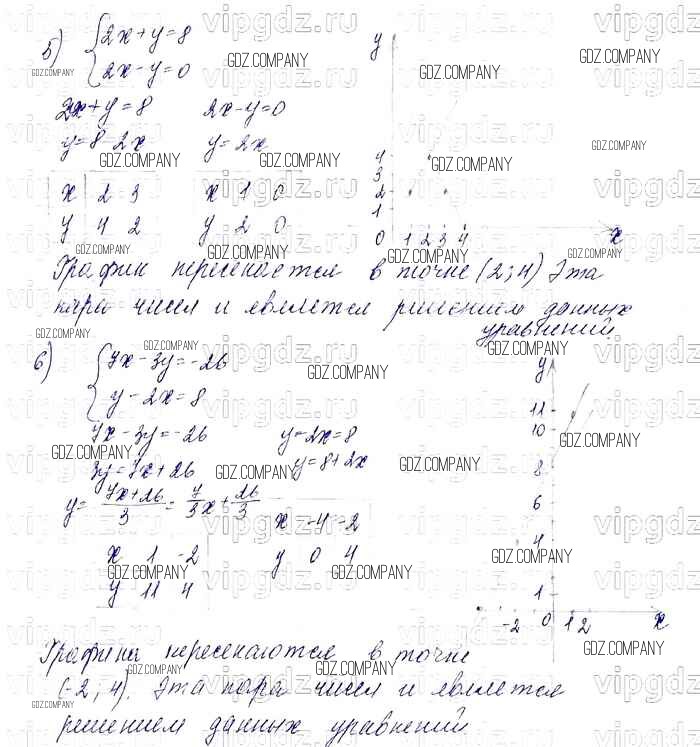 5) { 2x+y=8
2x-y=0
2x+y=8 2x-y=0
y=8-2x y=2x
x 2 3 x 1 0
y 4 2 y 2 0
y
4
3
2
1
0 1 2 3 4 x
График пересекается в точке (2;4) Эта
пара чисел и является решением данных
уравнений.
6) { 7x-3y=-26
y-2x=8
7x-3y=-26 y-2x=8
3y=7x+26 y=8+2x
y= 7x+26/3 = 7/3x+26/3
x -4 -2
x 1 -2 y 0 4
y 11 4
y
11
10
8
6
4
1
-2 0 1 2 x
Графики пересекаются в точке
(-2; 4). Эта пара чисел и является
решением данных уравнений.
vipgdz.ru
GDZ.COMPANY